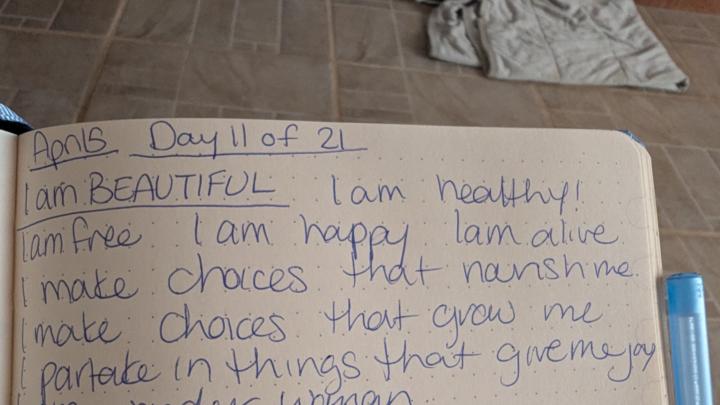 April 5 Day 11 of 21
I am BEAUTIFUL I am healthy!
I am free I am happy I am alive
I make choices that nourish me.
I make choices that grow me
I partake in things that give me joy
woman